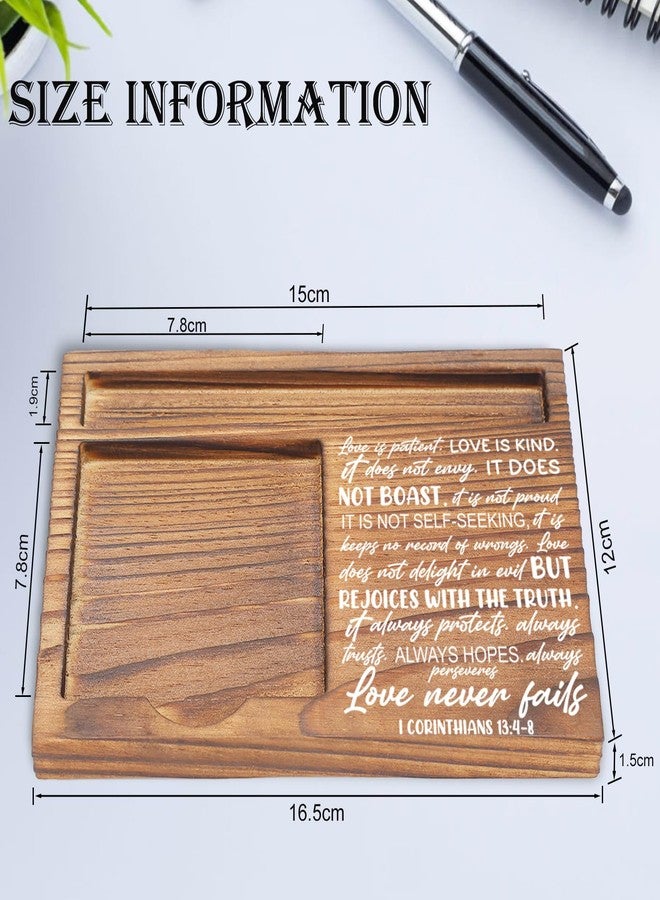 SIZE INFORMATION
15cm
7.8cm
1.9cm
7.8cm
Love is patient. LOVE IS KIND.
it does not envy. IT DOES
NOT BOAST. it is not proud
IT IS NOT SELF-SEEKING, it is
keeps no record of wrongs. Love
does not delight in evil BUT
REJOICES WITH THE TRUTH.
it always protects. always
trusts. ALWAYS HOPES. always
perseveres
Love never fails
1 CORINTHIANS 13:4-8
12cm
1.5cm
16.5cm